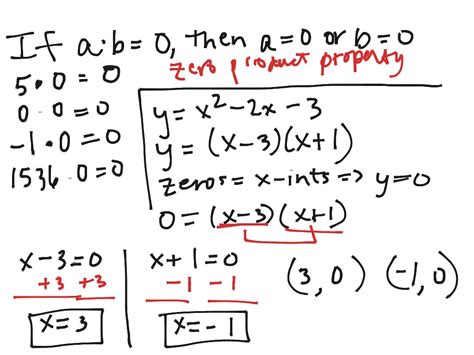 If a·b=0, then a=0 or b=0
zero product property
5·0=0
0·0=0
-1·0=0
1536·0=0
y=x²-2x-3
y=(x-3)(x+1)
zeros=x-ints=>y=0
0=(x-3)(x+1)
x-3=0
+3 +3
x=3
x+1=0
-1 -1
x=-1
(3,0) (-1,0)